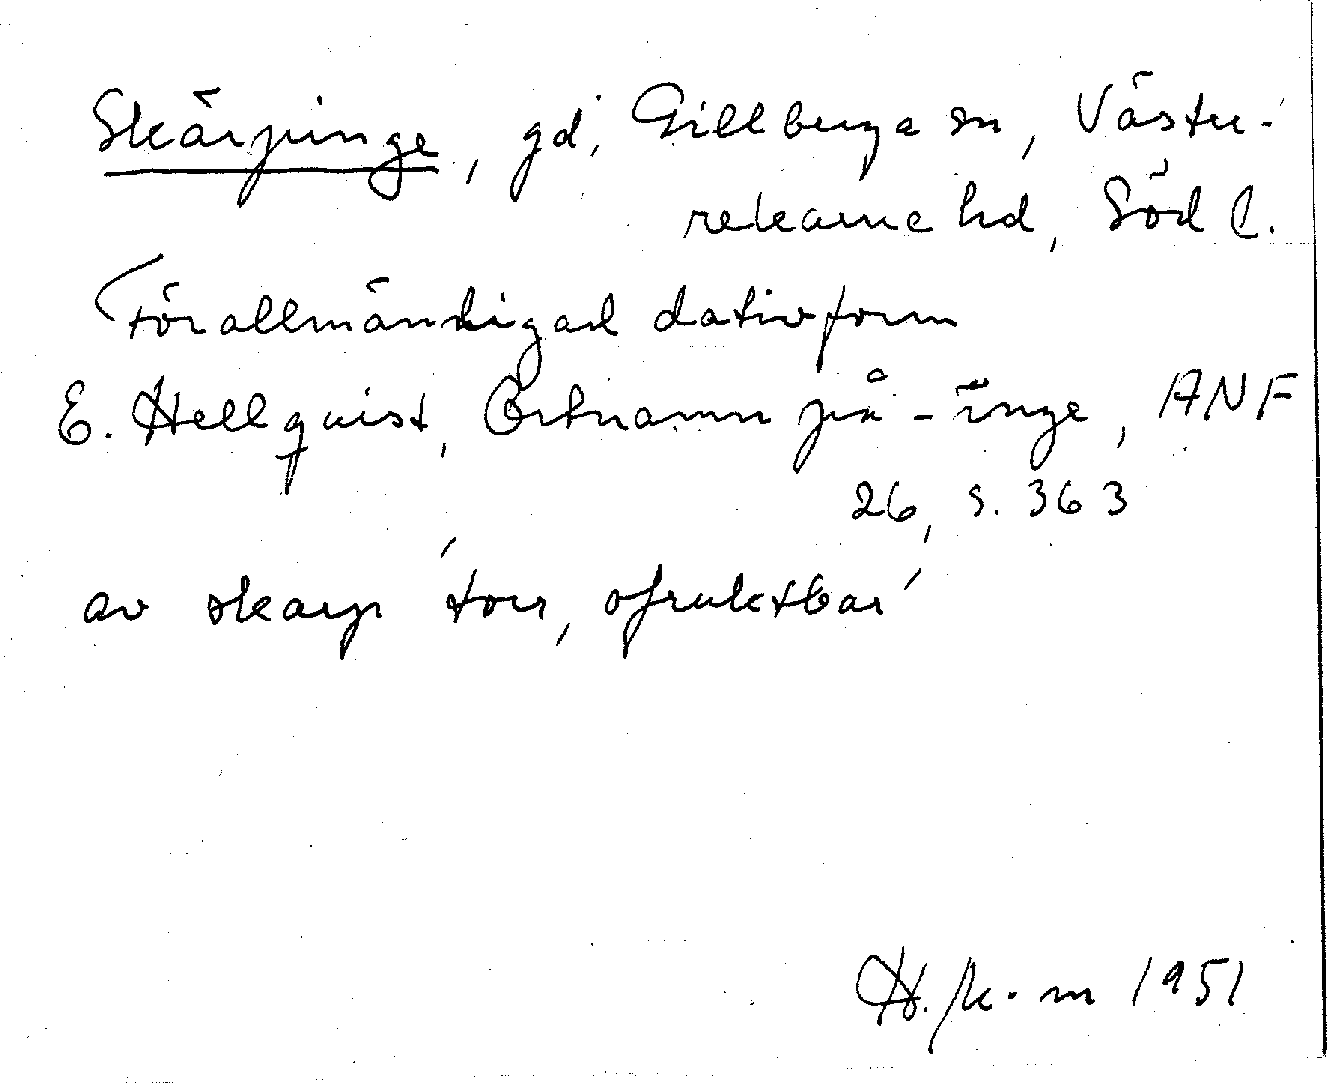 Skärpinge, gd, Gillberga sn, Väster-
rekarne hd, Söd l.
Förallmänligad dativform
E. Hellquist, Ortnamn på -inge, ANF
26, s. 363
av skarp 'torr, ofruktbar'
1951